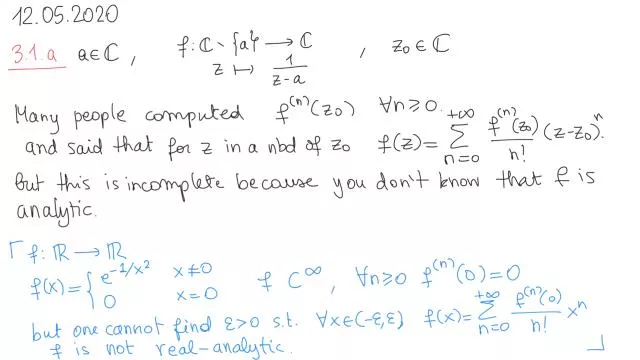 12.05.2020
3.1.a a∈ℂ, f: ℂ \ {a} → ℂ, z₀∈ℂ
z ↦ 1/(z-a)
Many people computed f⁽ⁿ⁾(z₀) ∀n≥0.
and said that for z in a nbd of z₀ f(z)= ∑_{n=0}^{+∞} f⁽ⁿ⁾(z₀)/n! (z-z₀)ⁿ.
But this is incomplete because you don't know that f is
analytic.
⌈ f: ℝ → ℝ
f(x)= { e^{-1/x²} x≠0
0 x=0
f C^∞, ∀n≥0 f⁽ⁿ⁾(0)=0
but one cannot find ε>0 s.t. ∀x∈(-ε,ε) f(x)= ∑_{n=0}^{+∞} f⁽ⁿ⁾(0)/n! xⁿ
f is not real-analytic. ⌋